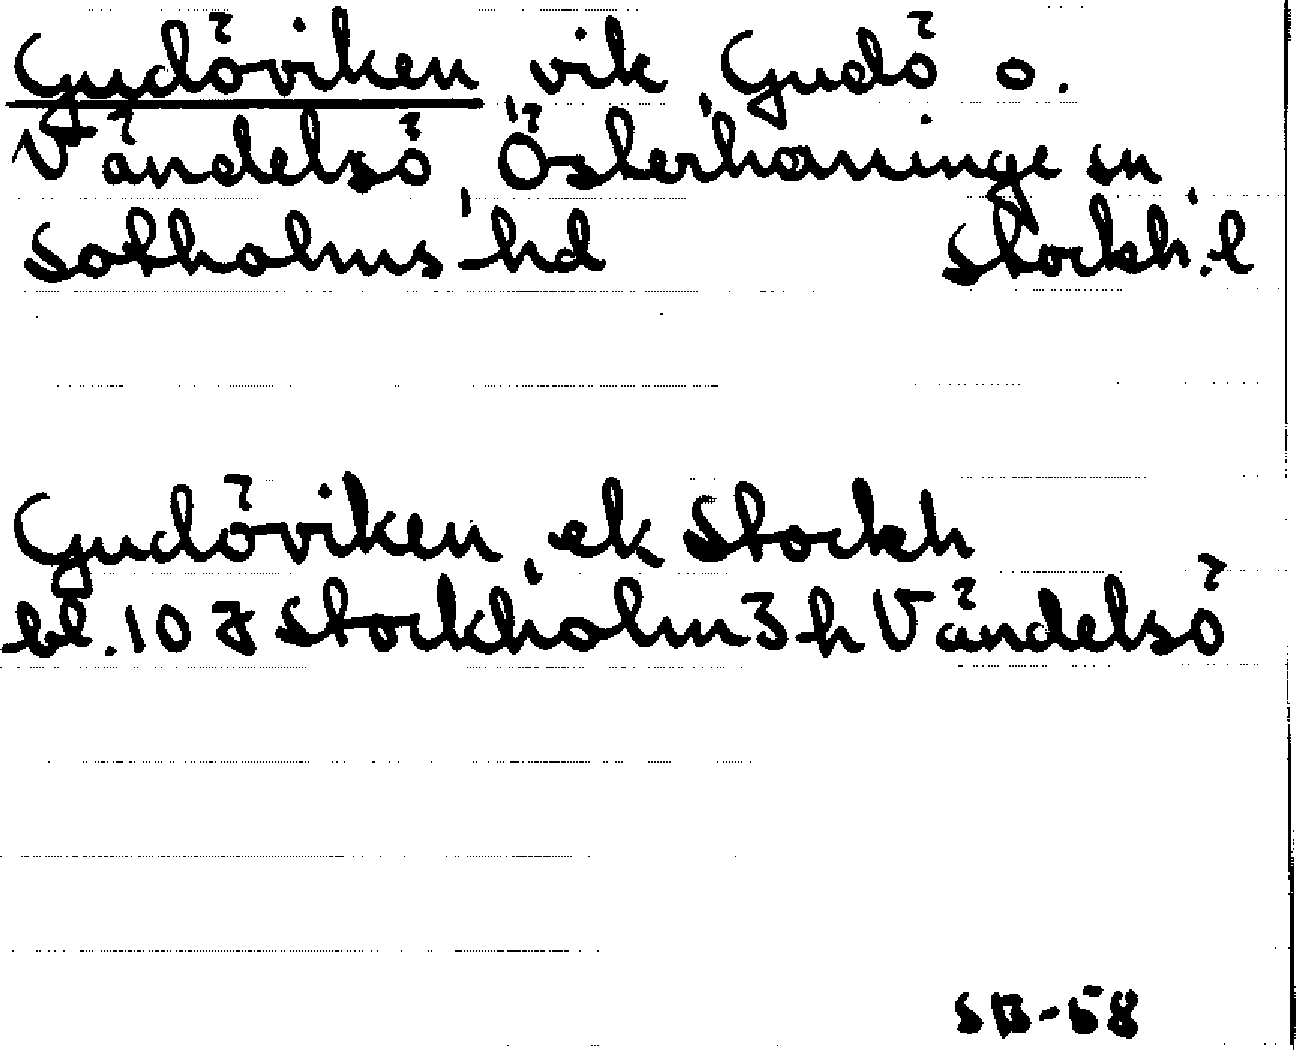 Gudöviken, vik, Gudö o.
Vändelsö, Österhaninge sn,
Sotholms hd Stockh. l
Gudöviken, ek Stockh
bl. 10 J Stockholm 3 h Vändelsö
SB-58